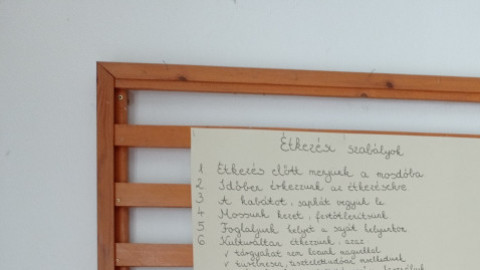 Étkezési szabályok
1 Étkezés előtt megyünk a mosdóba
2 Időben érkezzünk az étkezésekre
3 A kabátot, sapkát vegyük le
4 Mossunk kezet, fertőtlenítsünk
5 Foglaljunk helyet a saját helyünkön
6 Kulturáltan étkezzünk, azaz
✓ tárgyakat nem leszek magunkkal
✓